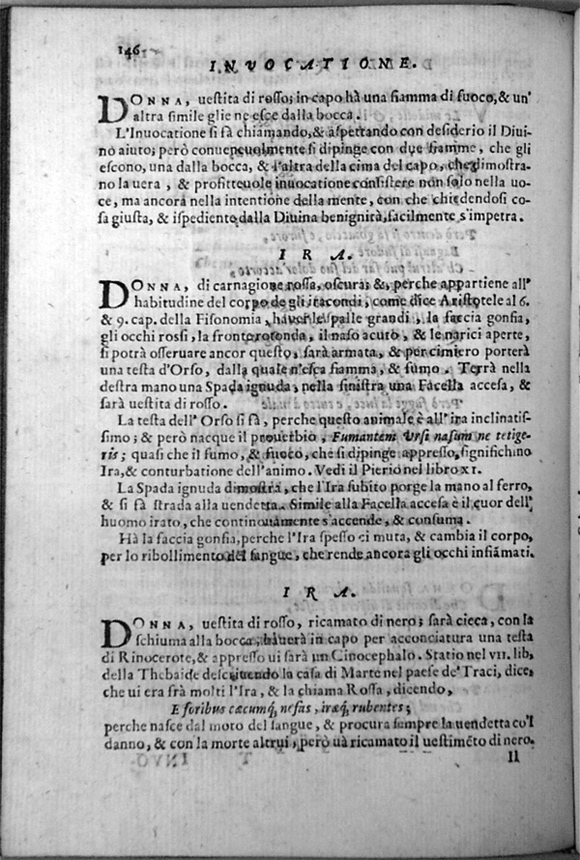 146
INVOCATIONE.
DONNA, uestita di rosso; in capo hà una fiamma di fuoco, & un'
altra simile glie ne esce dalla bocca.
L'Inuocatione si fà chiamando, & aspettando con desiderio il Diui-
no aiuto; però conueneuolmente si dipinge con due fiamme, che gli
escono, una dalla bocca, & l'altra della cima del capo, che dimostra-
no la uera, & profitteuole inuocatione consistere non solo nella uo-
ce, ma ancora nella intentione della mente, con che chiedendosi co-
sa giusta, & ispediente dalla Diuina benignità, facilmente s'impetra.
IRA.
DONNA, di carnagione rossa, oscura; &, perche appartiene all'
habitudine del corpo de gli iracondi, come dice Aristotele al 6.
& 9. cap. della Fisonomia, hauer le spalle grandi, la faccia gonfia,
gli occhi rossi, la fronte rotonda, il naso acuto, & le narici aperte,
si potrà osseruare ancor questo, sarà armata, & per cimiero porterà
una testa d'Orso, dalla quale n'esca fiamma, & fumo. Terrà nella
destra mano una Spada ignuda, nella sinistra una Facella accesa, &
sarà uestita di rosso.
La testa dell'Orso si fà, perche questo animale è all'ira inclinatis-
simo; & però nacque il prouerbio, Fumantem Vrsi nasum ne tetige-
ris; quasi che il fumo, & fuoco, che si dipinge appresso, significhino
Ira, & conturbatione dell'animo. Vedi il Pierio nel libro XI.
La Spada ignuda dimostra, che l'Ira subito porge la mano al ferro,
& si fà strada alla uendetta. Simile alla Facella accesa è il cuor dell'
huomo irato, che continouamente s'accende, & consuma.
Hà la faccia gonfia, perche l'Ira spesso ci muta, & cambia il corpo,
per lo ribollimento del sangue, che rende ancora gli occhi infiãmati.
IRA.
DONNA, uestita di rosso, ricamato di nero; sarà cieca, con la
schiuma alla bocca, hauerà in capo per acconciatura una testa
di Rinocerote, & appresso ui sarà un Cinocephalo. Statio nel VII. lib.
della Thebaide descriuendo la casa di Marte nel paese de' Traci, dice,
che ui era frà molti l'Ira, & la chiama Rossa, dicendo,
E foribus cæcumq́; nefas, iræq́; rubentes;
perche nasce dal moto del sangue, & procura sempre la uendetta co'l
danno, & con la morte altrui, però uà ricamato il uestimẽto di nero.
Il